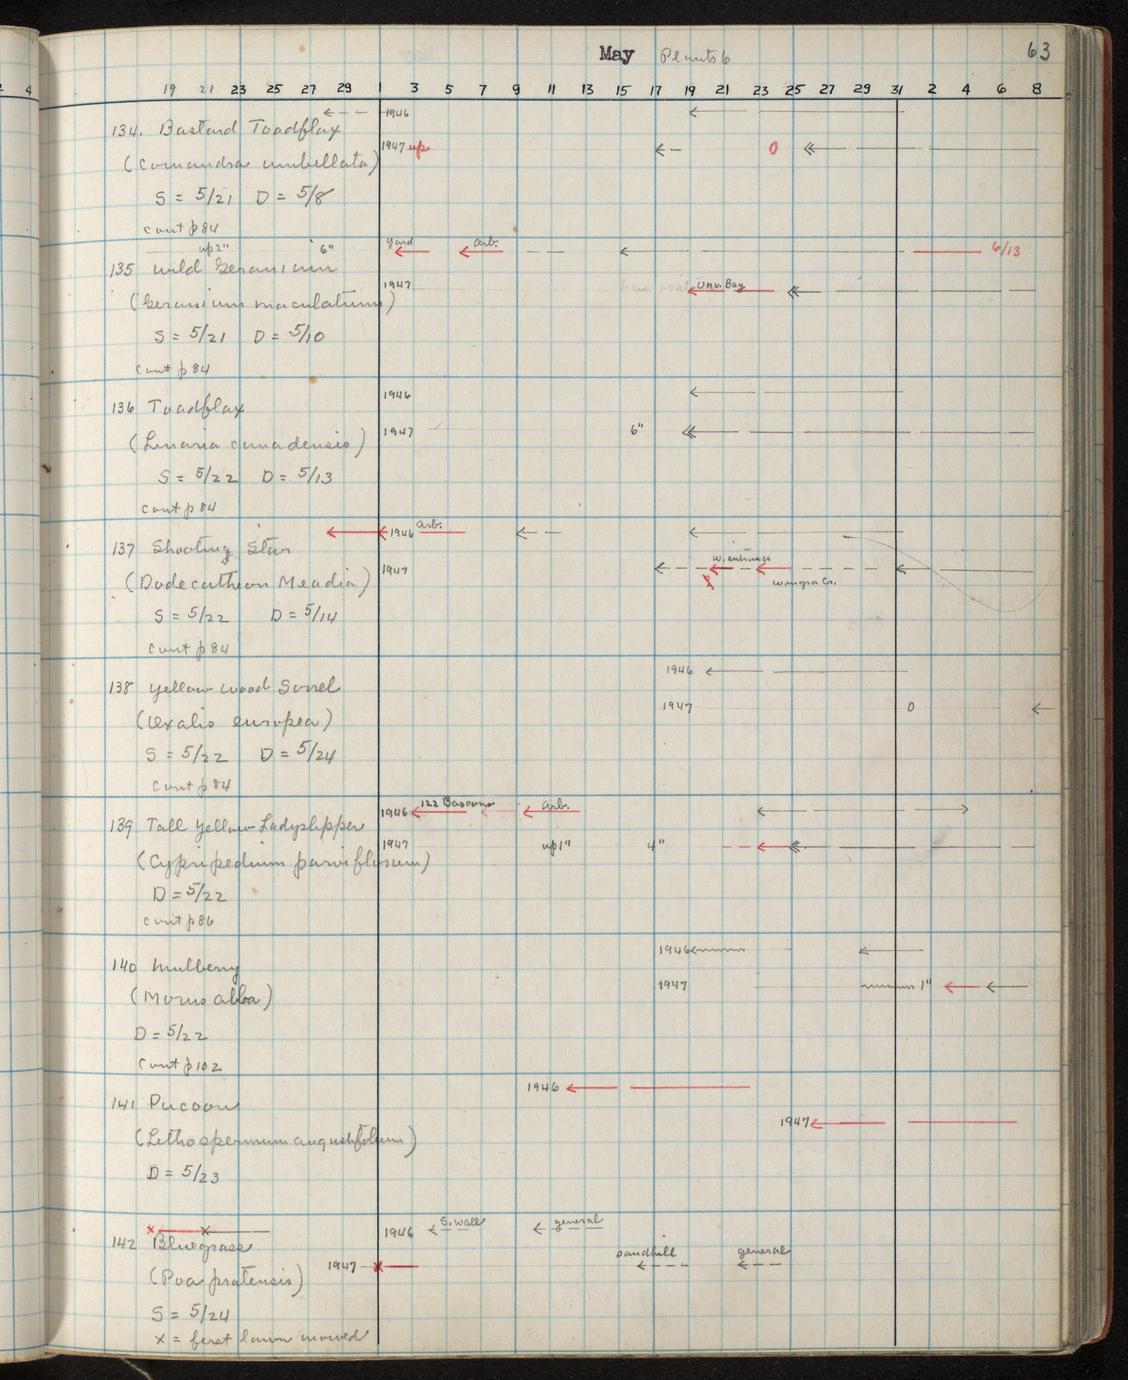 May Plants 6 63
4 19 21 23 25 27 29 1 3 5 7 9 11 13 15 17 19 21 23 25 27 29 31 2 4 6 8
1946
134. Bastard Toadflax
1947 up 0
(Comandra umbellata)
S = 5/21 D = 5/8
cont p 84
up 2" 6" Yard Arb. 6/13
135 Wild Geranium
1947 Univ. Bay
(Geranium maculatum)
S = 5/21 D = 5/10
cont p 84
1946
136 Toadflax
1947 6"
(Linaria canadensis)
S = 5/22 D = 5/13
cont p 84
1946 Arb.
137 Shooting Star
W. entrance
1947
(Dodecatheon Meadia) Wingra Cr.
S = 5/22 D = 5/14
cont p 84
1946
138 Yellow Wood Sorrel
1947 0
(Oxalis europea)
S = 5/22 D = 5/24
cont p 84
1946 122 Bascom Arb.
139 Tall Yellow Ladyslipper
1947 up 1" 4"
(Cypripedium parviflorum)
D = 5/22
cont p 86
1946
140 Mulberry
1947 1"
(Morus alba)
D = 5/22
Cont p 102
1946
141 Pucoon
1947
(Lethospermum angustifolium)
D = 5/23
x x 1946 S. wall general
142 Bluegrass
sandhill general
1947 x
(Poa pratensis)
S = 5/24
x = first lawn mowed